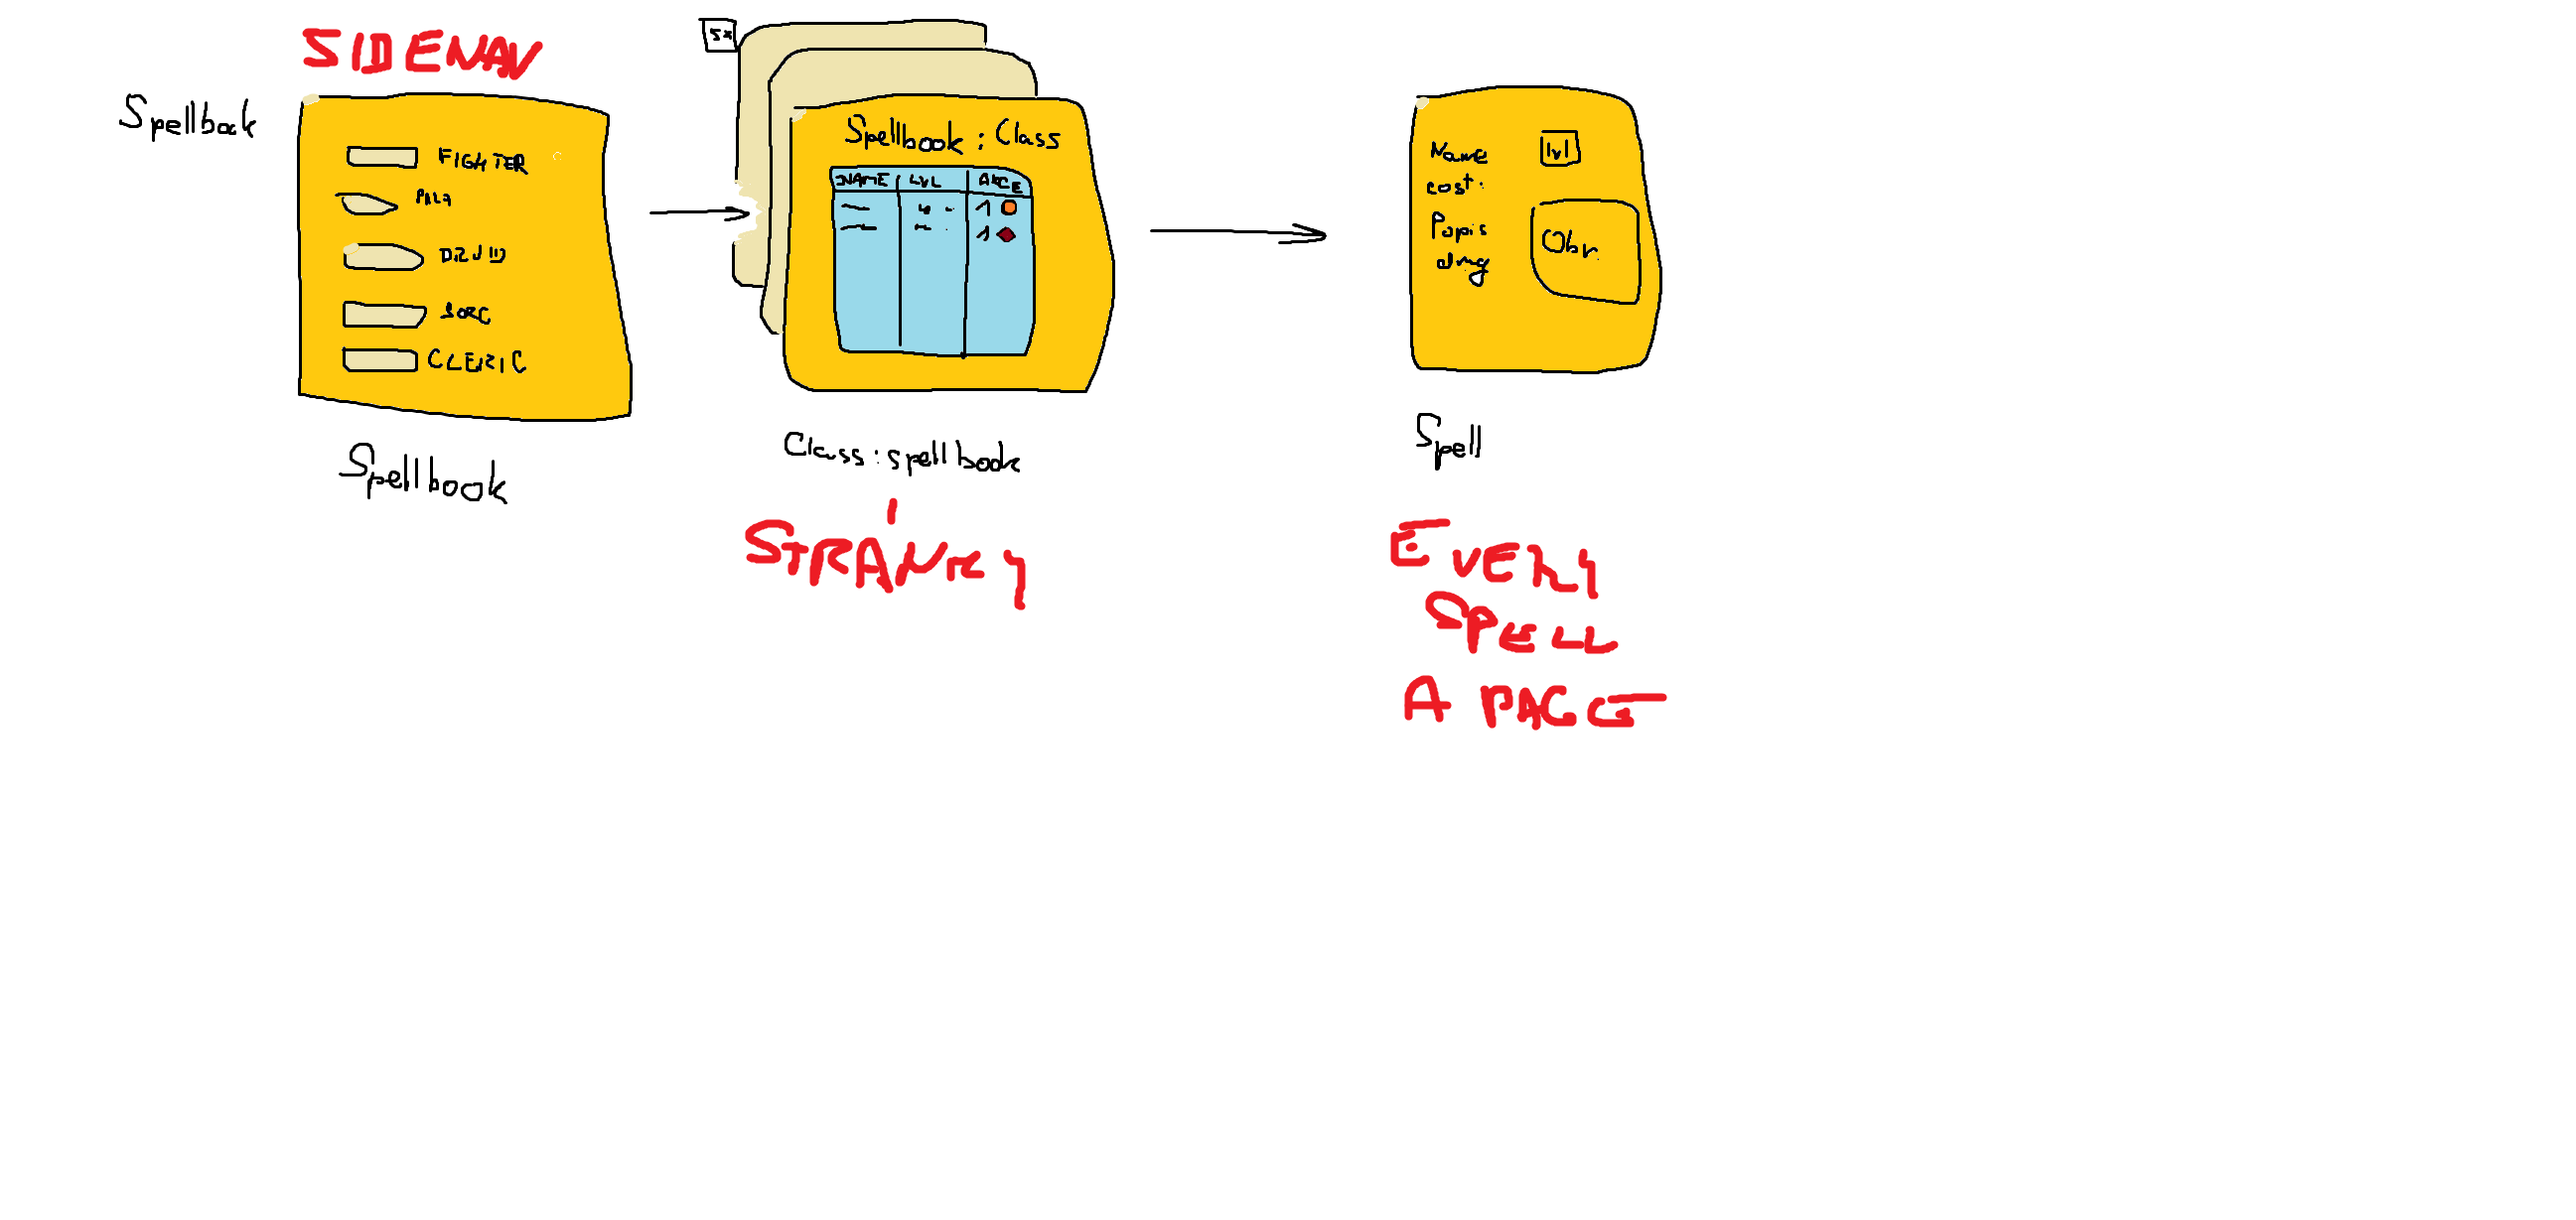 SIDENAV
Spellbook
FIGHTER
PALA
DRUID
SORC
CLERIC
Spellbook
5x
Spellbook : Class
NAME LVL AKCE
1
1
Class : spellbook
STRÁNKY
Name lvl
cost:
Popis
dmg
Obr.
Spell
EVERY
SPELL
A PAGE